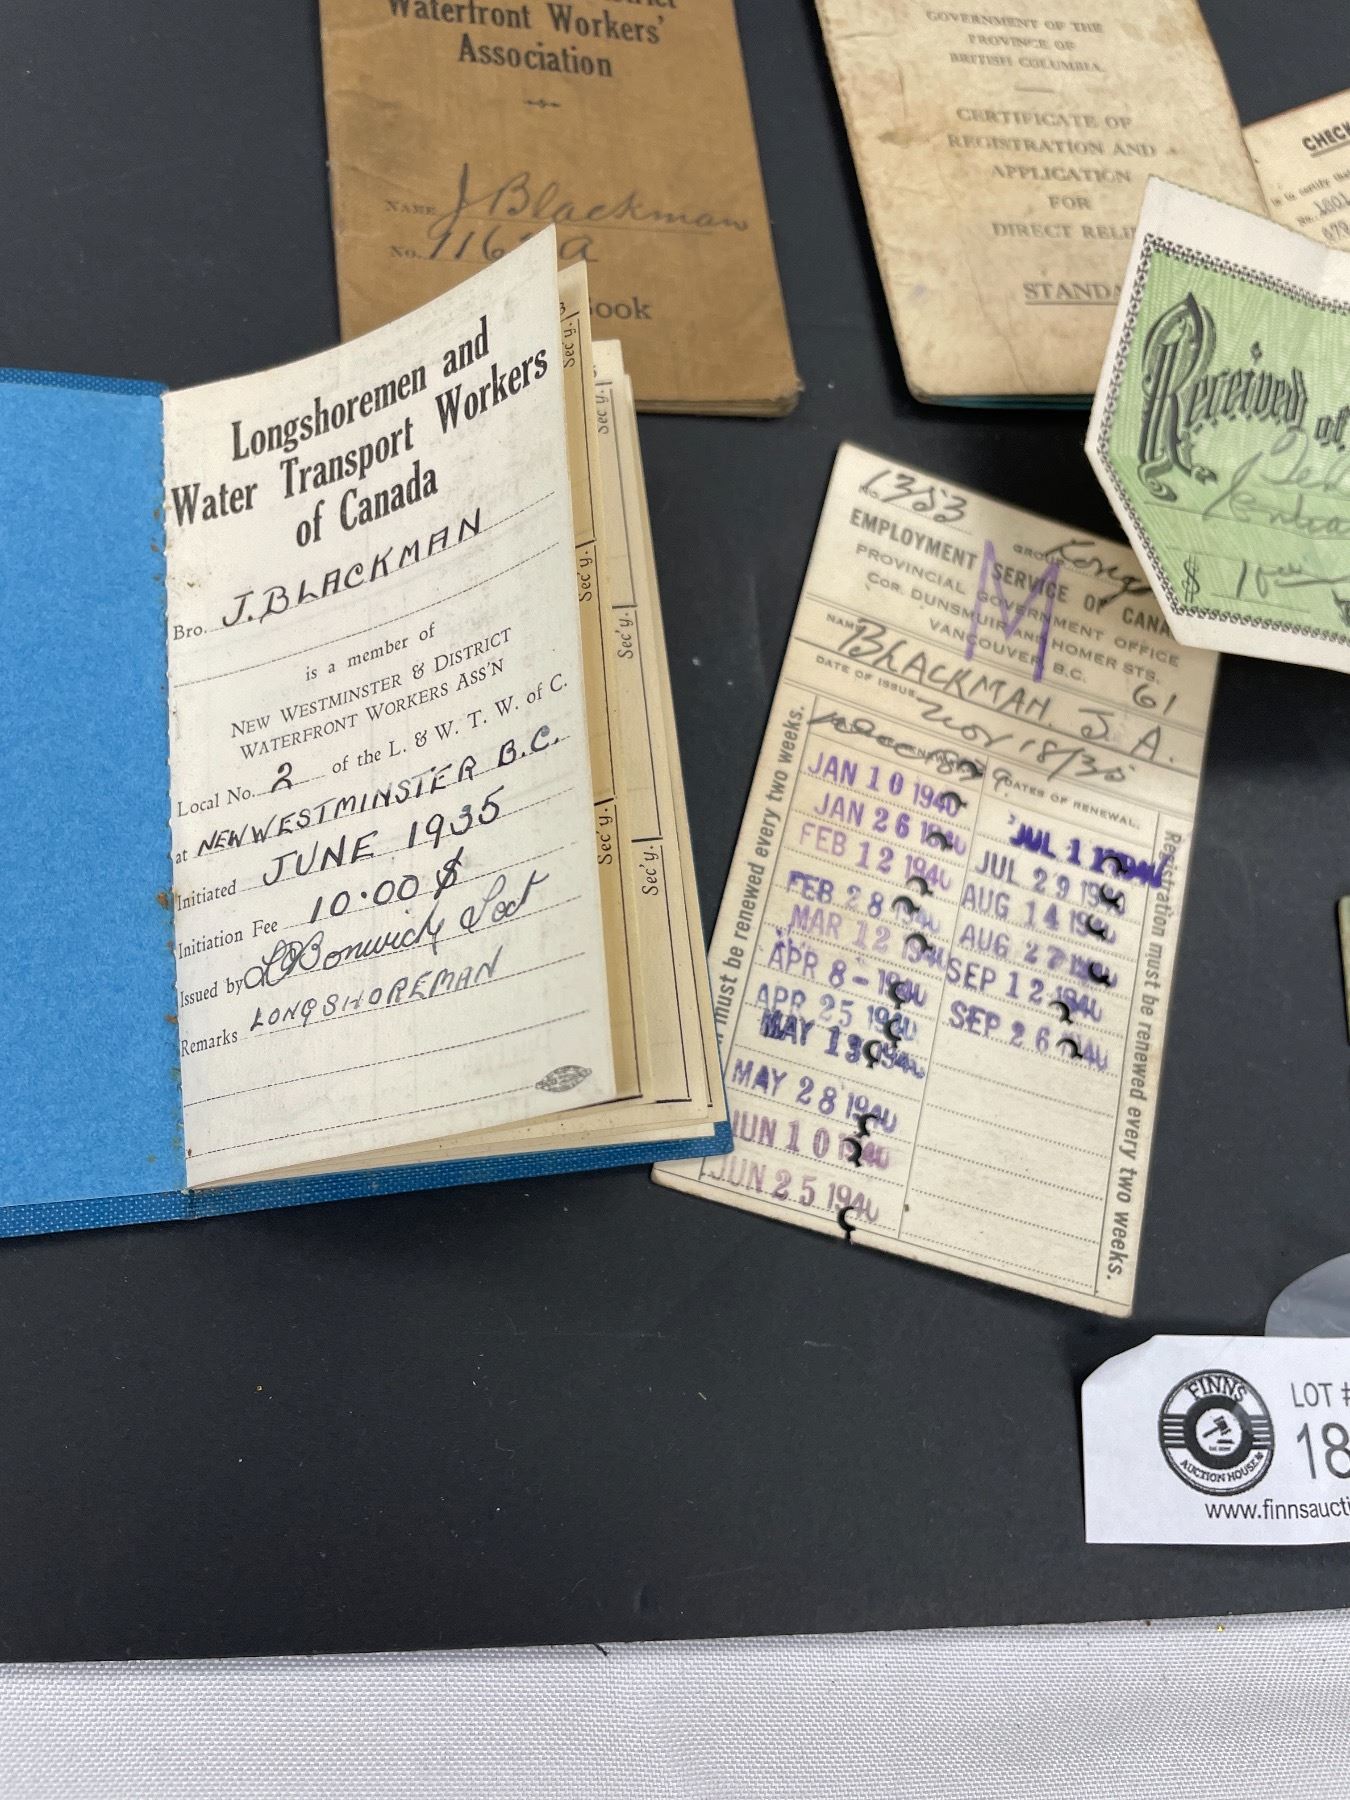 Waterfront Workers'
Association
NAME J Blackman
No.
Book
GOVERNMENT OF THE
PROVINCE OF
BRITISH COLUMBIA.
CERTIFICATE OF
REGISTRATION AND
APPLICATION
FOR
DIRECT
CHECK
Received of
$
Longshoremen and
Water Transport Workers
of Canada
Bro. J. BLACKMAN
is a member of
NEW WESTMINSTER & DISTRICT
WATERFRONT WORKERS ASS'N
Local No. 2 of the L. & W. T. W. of C.
at NEW WESTMINSTER B.C.
Initiated JUNE 1935
Initiation Fee 10.00 $
Issued by
Remarks LONGSHOREMAN
Sec'y.
Sec'y.
Sec'y.
Sec'y.
Sec'y.
Sec'y.
No. 1353
GROUP
EMPLOYMENT SERVICE OF
M
PROVINCIAL GOVERNMENT OFFICE
COR. DUNSMUIR AND HOMER STS.
VANCOUVER, B.C.
61
NAME BLACKMAN. J. A.
DATE OF ISSUE Nov 18/38
DATES OF RENEWAL.
JAN 10 1940
JAN 26 1940
FEB 12 1940
FEB 28 1940
MAR 12 1940
APR 8 - 1940
APR 25 1940
MAY 13 1940
MAY 28 1940
JUN 10 1940
JUN 25 1940
JUL 1
JUL 29 1940
AUG 14 1940
AUG 27 1940
SEP 12 1940
SEP 26 1940
must be renewed every two weeks.
Registration must be renewed every two weeks.
FINNS
AUCTION HOUSE
LOT #
18
www.finnsaucti